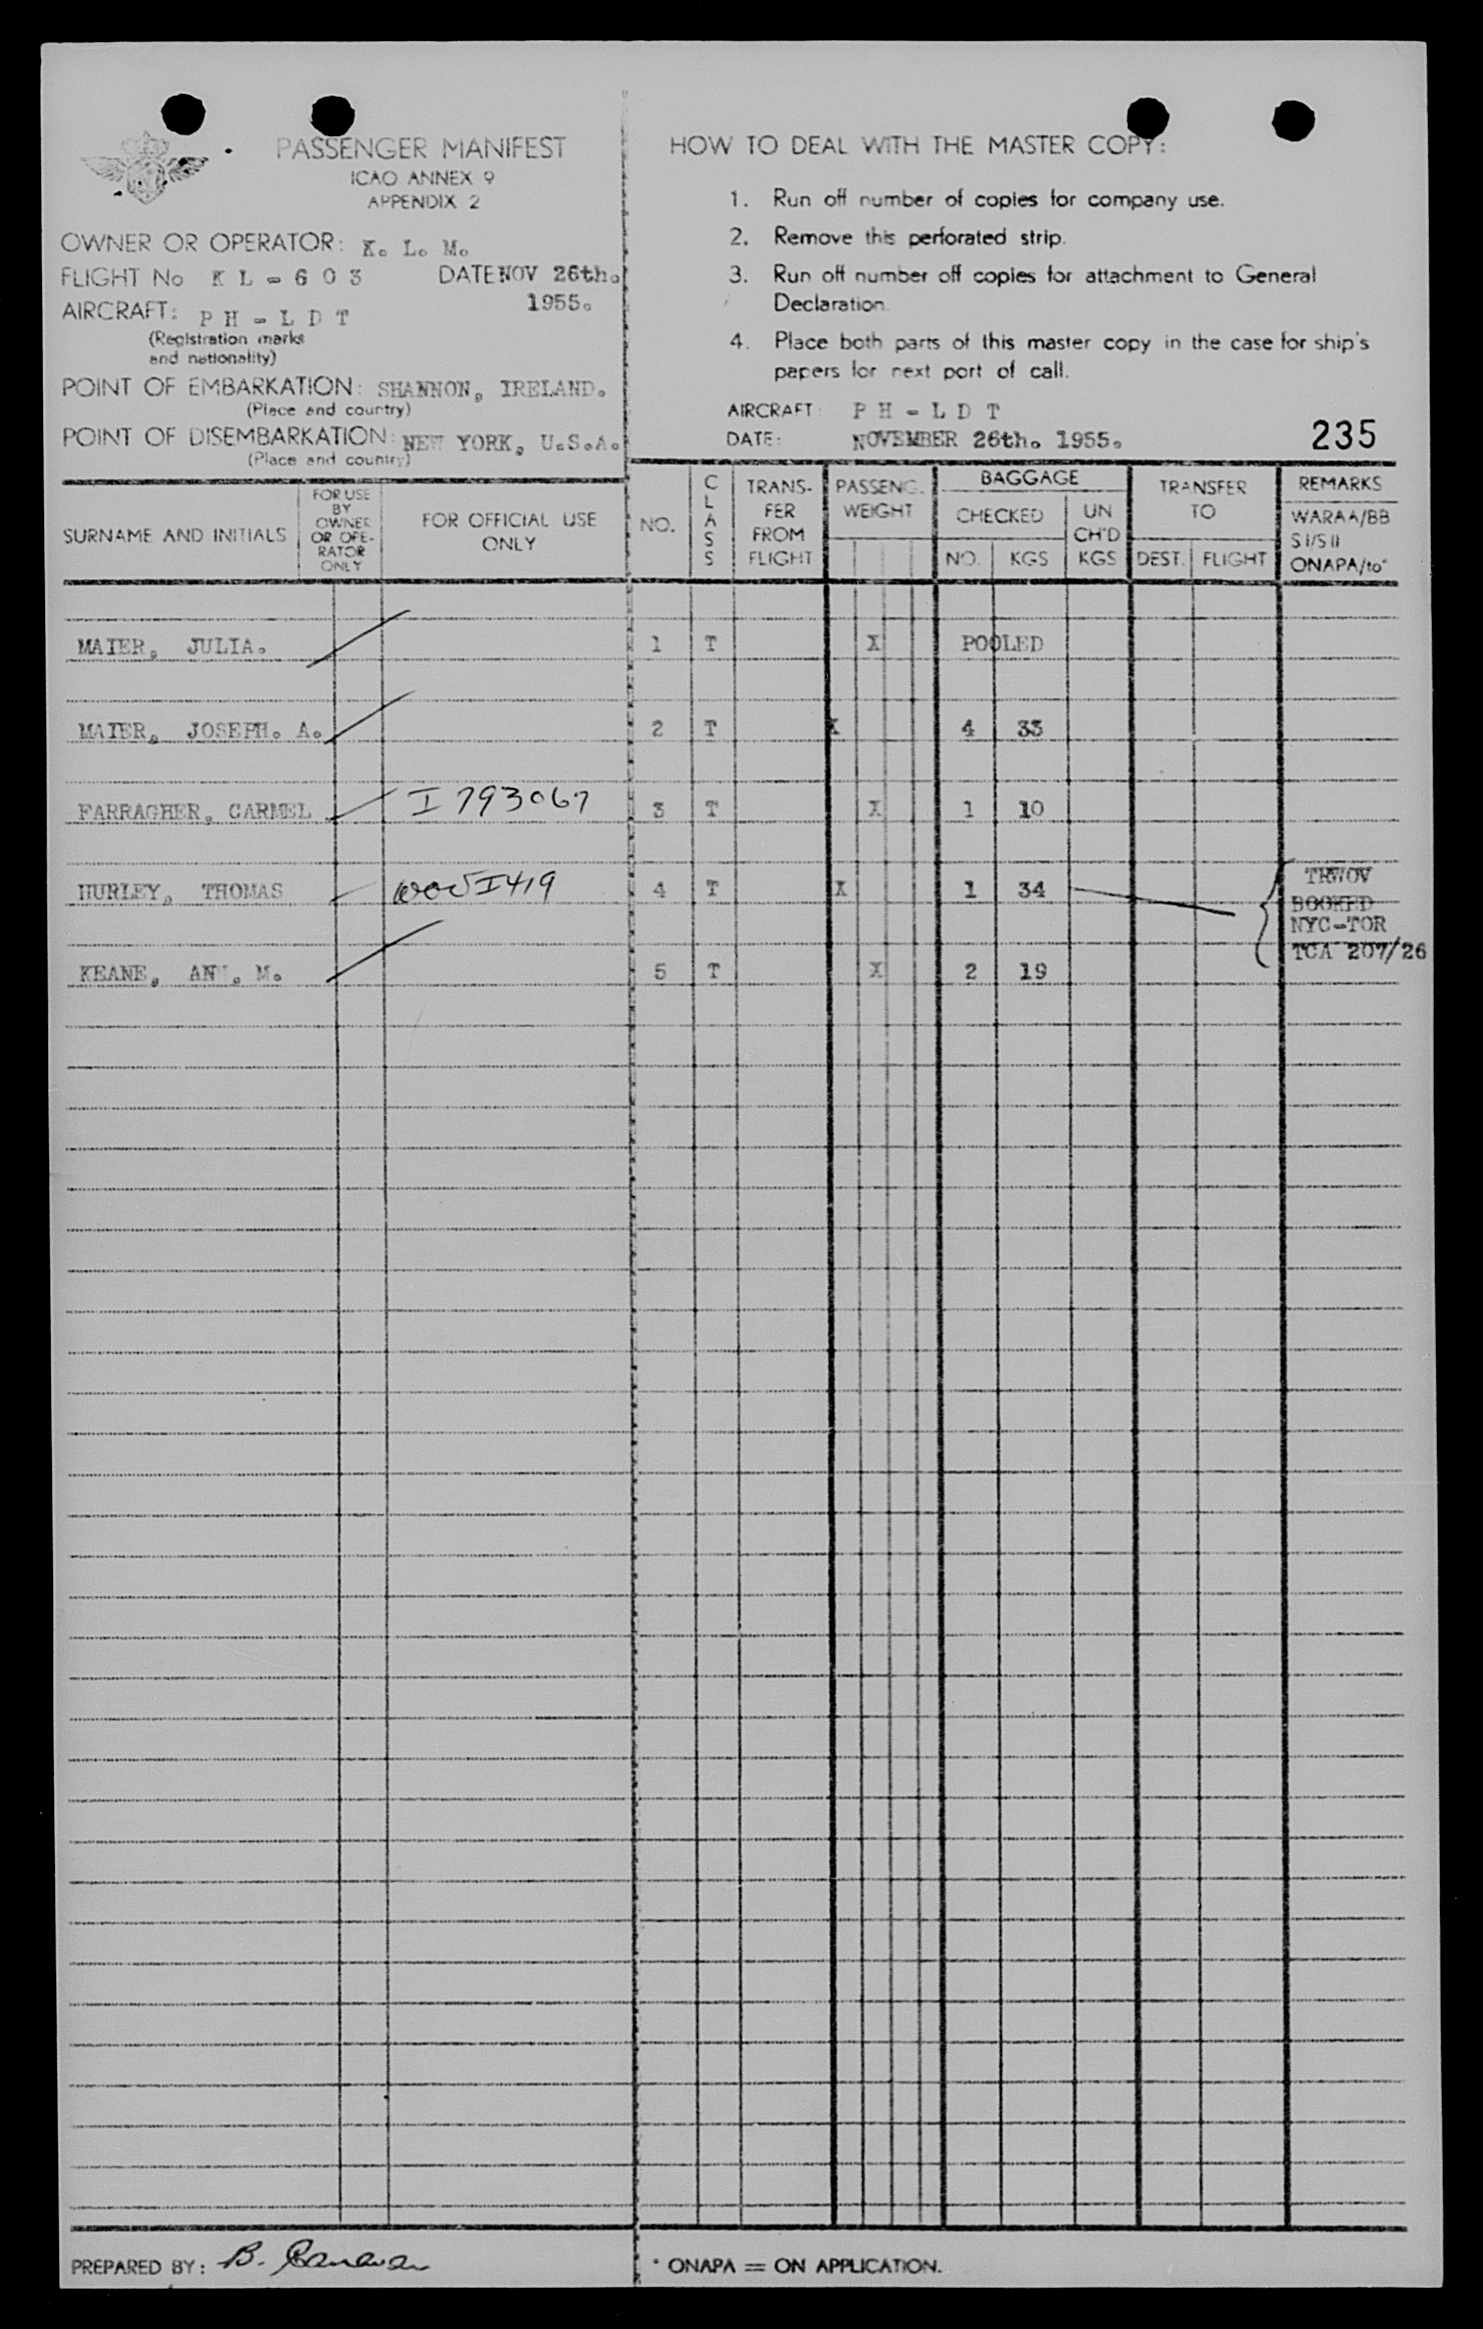 PASSENGER MANIFEST
ICAO ANNEX 9
APPENDIX 2
OWNER OR OPERATOR: K. L. M.
FLIGHT No K L - 6 0 3 DATE NOV 26th. 1955.
AIRCRAFT: P H - L D T
(Registration marks
and nationality)
POINT OF EMBARKATION: SHANNON, IRELAND.
(Place and country)
POINT OF DISEMBARKATION: NEW YORK, U.S.A.
(Place and country)
HOW TO DEAL WITH THE MASTER COPY:
1. Run off number of copies for company use.
2. Remove this perforated strip.
3. Run off number off copies for attachment to General
Declaration.
4. Place both parts of this master copy in the case for ship's
papers for next port of call.
AIRCRAFT: P H - L D T
DATE: NOVEMBER 26th. 1955.
235
SURNAME AND INITIALS
FOR USE
BY
OWNER
OR OPE-
RATOR
ONLY
FOR OFFICIAL USE
ONLY
NO.
CLASS
TRANS-
FER
FROM
FLIGHT
PASSENG.
WEIGHT
BAGGAGE
CHECKED
NO. KGS
UN
CH'D
KGS
TRANSFER
TO
DEST. FLIGHT
REMARKS
WARAA/BB
S I/S II
ONAPA/to*
MAIER, JULIA. 1 T X POOLED
MAIER, JOSEPH. A. 2 T X 4 33
FARRAGHER, CARMEL I 793067 3 T X 1 10
HURLEY, THOMAS I419 4 T X 1 34
TRWOV
BOOKED
NYC-TOR
TCA 207/26
KEANE, ANN. M. 5 T X 2 19
PREPARED BY: B. Canavan
* ONAPA = ON APPLICATION.